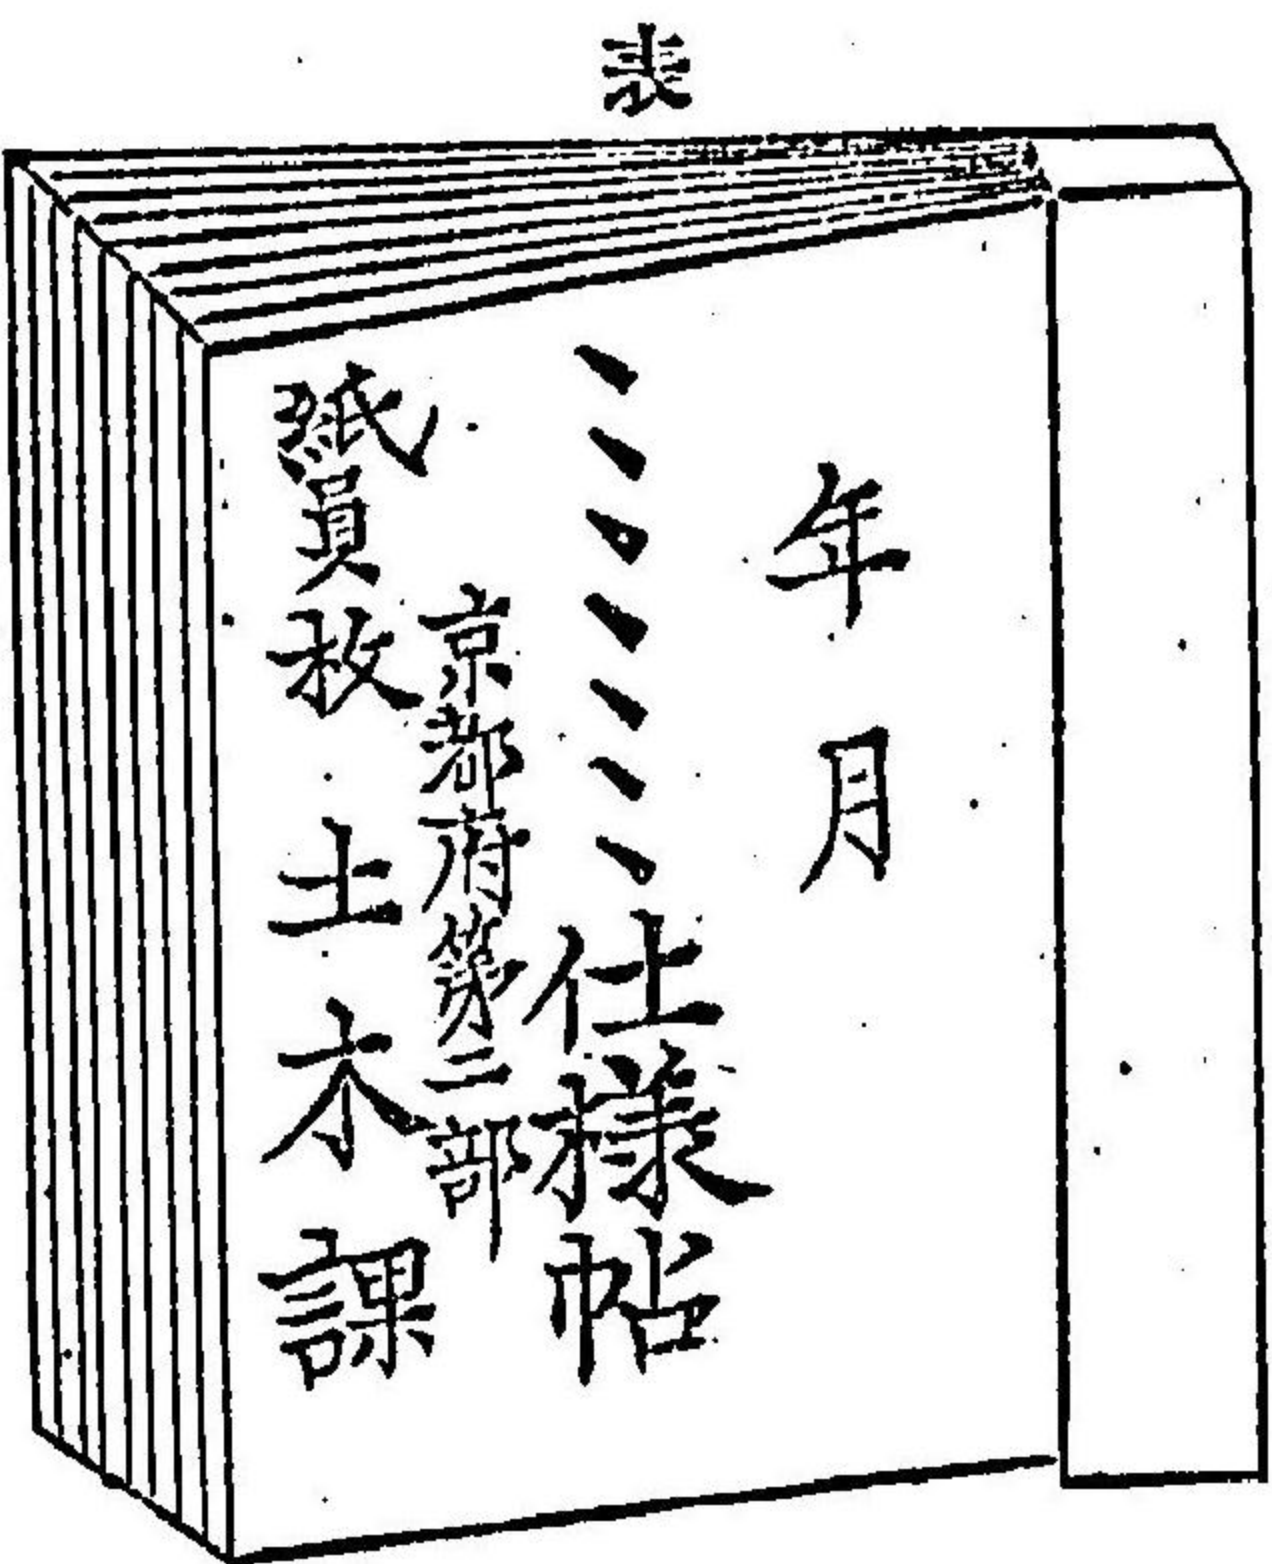 表
年月
、、、、、、、仕様帖
京都府第二部
紙員枚 土木課